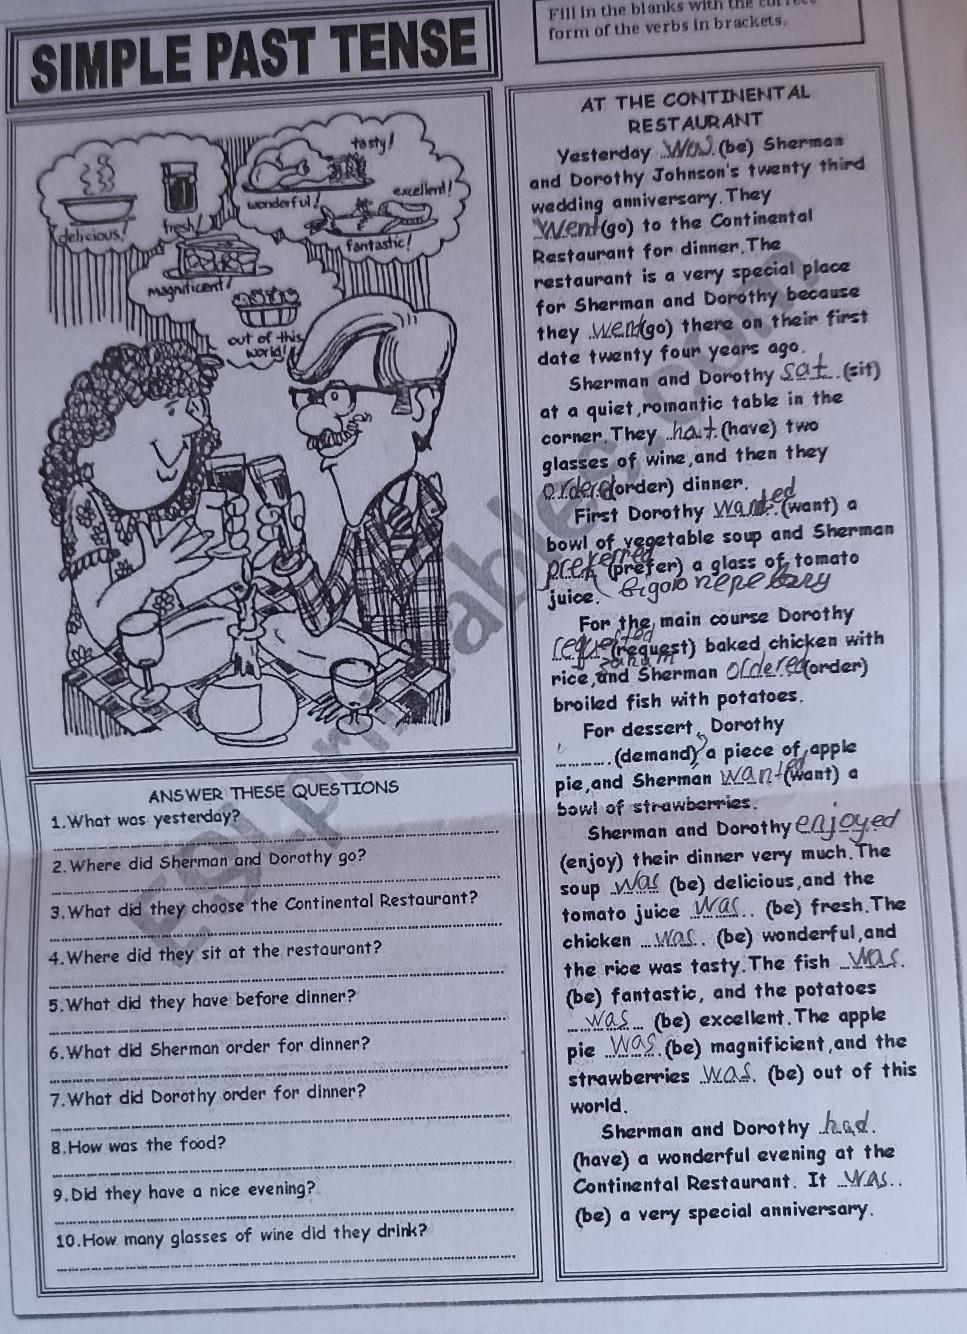 SIMPLE PAST TENSE
Fill in the blanks with the correct
form of the verbs in brackets.
tasty!
wonderful!
excellent!
fantastic!
delicious!
fresh!
magnificent!
out of this
world!
AT THE CONTINENTAL
RESTAURANT
Yesterday was (be) Sherman
and Dorothy Johnson's twenty third
wedding anniversary.They
went (go) to the Continental
Restaurant for dinner.The
restaurant is a very special place
for Sherman and Dorothy because
they went (go) there on their first
date twenty four years ago.
Sherman and Dorothy sat (sit)
at a quiet,romantic table in the
corner.They hat (have) two
glasses of wine,and then they
ordered (order) dinner.
First Dorothy wanted (want) a
bowl of vegetable soup and Sherman
preferred (prefer) a glass of tomato
juice.
For the main course Dorothy
requested (request) baked chicken with
rice,and Sherman ordered (order)
broiled fish with potatoes.
For dessert, Dorothy
........... (demand) a piece of apple
pie,and Sherman wanted (want) a
bowl of strawberries.
Sherman and Dorothy enjoyed
(enjoy) their dinner very much.The
soup was (be) delicious,and the
tomato juice was (be) fresh.The
chicken was (be) wonderful,and
the rice was tasty.The fish was
(be) fantastic, and the potatoes
was (be) excellent.The apple
pie was (be) magnificient,and the
strawberries was (be) out of this
world.
Sherman and Dorothy had
(have) a wonderful evening at the
Continental Restaurant. It was
(be) a very special anniversary.
ANSWER THESE QUESTIONS
1.What was yesterday?
2.Where did Sherman and Dorothy go?
3.What did they choose the Continental Restaurant?
4.Where did they sit at the restaurant?
5.What did they have before dinner?
6.What did Sherman order for dinner?
7.What did Dorothy order for dinner?
8.How was the food?
9.Did they have a nice evening?
10.How many glasses of wine did they drink?
ESLprintables.com